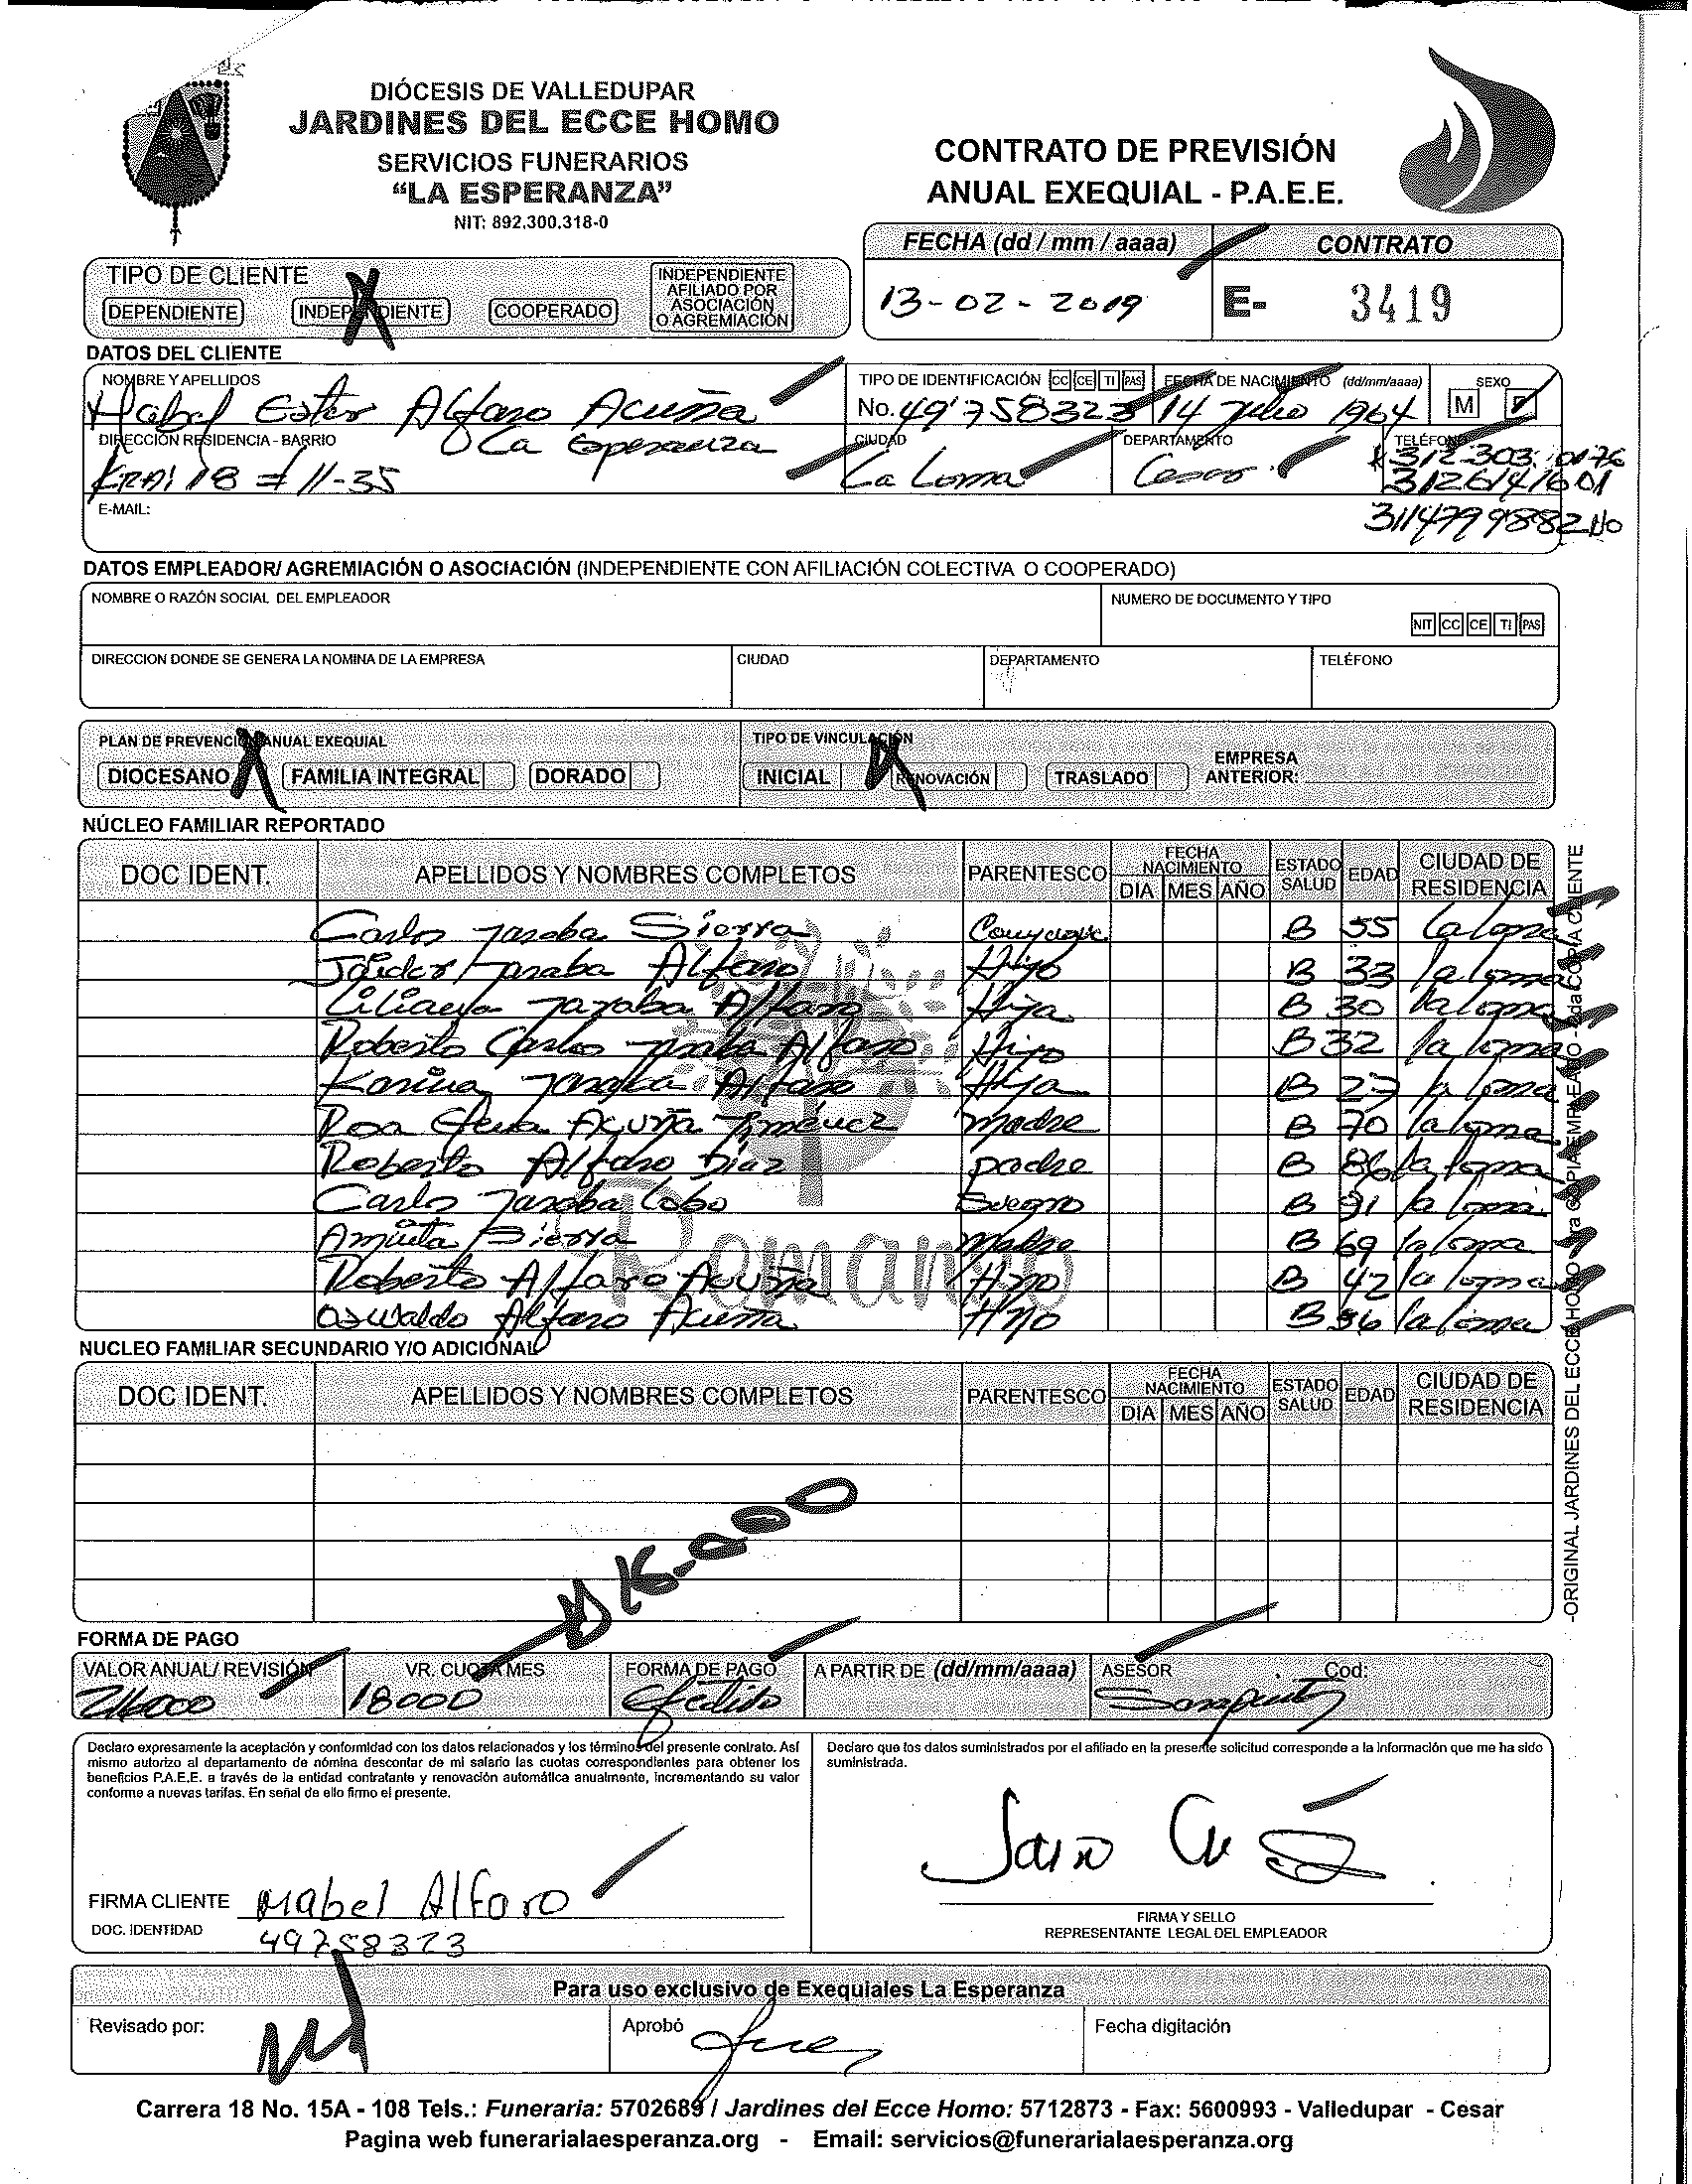 DIÓCESIS DE VALLEDUPAR
JARDINES DEL ECCE HOMO
SERVICIOS FUNERARIOS
“LA ESPERANZA”
NIT: 892.300.318-0
CONTRATO DE PREVISIÓN
ANUAL EXEQUIAL - P.A.E.E.
FECHA (dd / mm / aaaa) CONTRATO
13-02-2019 E- 3419
TIPO DE CLIENTE
DEPENDIENTE INDEPENDIENTE COOPERADO INDEPENDIENTE AFILIADO POR ASOCIACIÓN O AGREMIACIÓN
DATOS DEL CLIENTE
NOMBRE Y APELLIDOS TIPO DE IDENTIFICACIÓN CC CE TI PAS FECHA DE NACIMIENTO (dd/mm/aaaa) SEXO
Mabel Ester Alfaro Acuña No. 49'758323 14 Julio 1964 M F
DIRECCIÓN RESIDENCIA - BARRIO CIUDAD DEPARTAMENTO TELÉFONO
La Esperanza
KRA: 18 # 11-35 La Loma Cesar 312 303 0176
3126141601
E-MAIL: 3114799882 No
DATOS EMPLEADOR/ AGREMIACIÓN O ASOCIACIÓN (INDEPENDIENTE CON AFILIACIÓN COLECTIVA O COOPERADO)
NOMBRE O RAZÓN SOCIAL DEL EMPLEADOR NUMERO DE DOCUMENTO Y TIPO
NIT CC CE TI PAS
DIRECCION DONDE SE GENERA LA NOMINA DE LA EMPRESA CIUDAD DEPARTAMENTO TELÉFONO
PLAN DE PREVENCIÓN ANUAL EXEQUIAL TIPO DE VINCULACIÓN
DIOCESANO X FAMILIA INTEGRAL DORADO INICIAL X RENOVACIÓN TRASLADO EMPRESA ANTERIOR:
NÚCLEO FAMILIAR REPORTADO
DOC IDENT. APELLIDOS Y NOMBRES COMPLETOS PARENTESCO FECHA NACIMIENTO DIA MES AÑO ESTADO SALUD EDAD CIUDAD DE RESIDENCIA
Carlos Jaraba Sierra Conyugue B 55 La Loma
Jaider Jaraba Alfaro Hijo B 33 la loma
Liliana Jaraba Alfaro Hija B 30 la loma
Roberto Carlos Jaraba Alfaro Hijo B 32 la loma
Karina Jaraba Alfaro Hija B 27 la loma
Rosa Elena Acuña Jiménez Madre B 70 la loma
Roberto Alfaro Díaz padre B 86 la loma
Carlos Jaraba Lobo Suegro B 91 la loma
Aminta Sierra Madre B 69 la loma
Roberto Alfaro Acuña Hno B 42 la loma
Oswaldo Alfaro Acuña Hno B 36 la loma
Romanso
NUCLEO FAMILIAR SECUNDARIO Y/O ADICIONAL
DOC IDENT. APELLIDOS Y NOMBRES COMPLETOS PARENTESCO FECHA NACIMIENTO DIA MES AÑO ESTADO SALUD EDAD CIUDAD DE RESIDENCIA
16.000
FORMA DE PAGO
VALOR ANUAL/ REVISIÓN VR. CUOTA MES FORMA DE PAGO A PARTIR DE (dd/mm/aaaa) ASESOR Cod:
216000 18000
Declaro expresamente la aceptación y conformidad con los datos relacionados y los términos del presente contrato. Así
mismo autorizo al departamento de nómina descontar de mi salario las cuotas correspondientes para obtener los
beneficios P.A.E.E. a través de la entidad contratante y renovación automática anualmente, incrementando su valor
conforme a nuevas tarifas. En señal de ello firmo el presente.
Declaro que los datos suministrados por el afiliado en la presente solicitud corresponde a la información que me ha sido
suministrada.
FIRMA CLIENTE Mabel Alfaro
DOC. IDENTIDAD 49758323
FIRMA Y SELLO
REPRESENTANTE LEGAL DEL EMPLEADOR
Para uso exclusivo de Exequiales La Esperanza
Revisado por: Aprobó Fecha digitación
Carrera 18 No. 15A - 108 Tels.: Funeraria: 5702689 / Jardines del Ecce Homo: 5712873 - Fax: 5600993 - Valledupar - Cesar
Pagina web funerarialaesperanza.org - Email: servicios@funerarialaesperanza.org